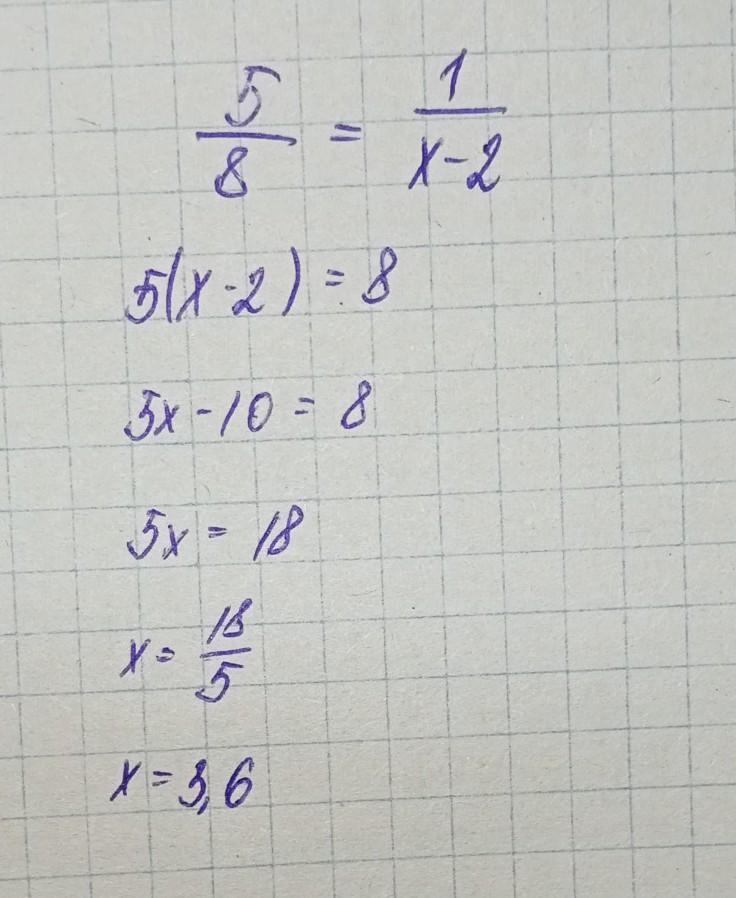 5/8 = 1/(x-2)
5(x-2) = 8
5x-10 = 8
5x = 18
x = 18/5
x = 3,6